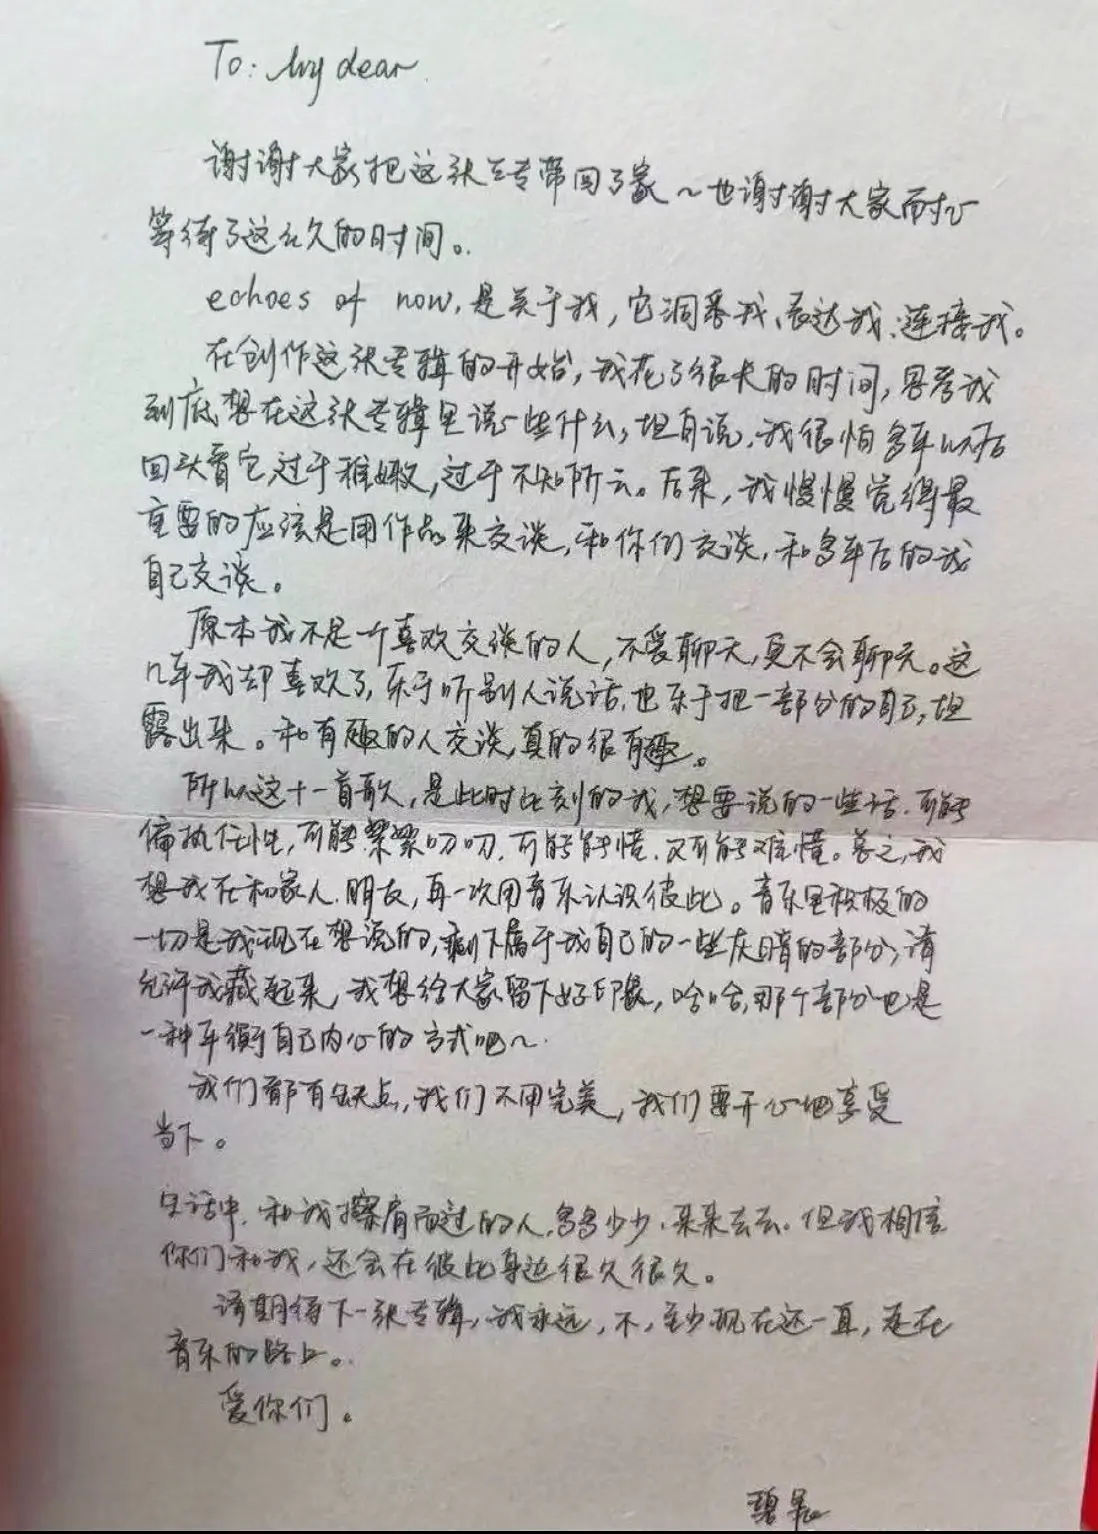 To: My dear
谢谢大家把这张专专带回了家～也谢谢大家耐心
等待了这么久的时间。
echoes of now,是关于我,它洞悉我、表达我、连接我。
在创作这张专辑的开始,我花了很长的时间,思考我
到底想在这张专辑里说一些什么,坦白说,我很怕多年以后
回头看它,过于稚嫩,过于不知所云。后来,我慢慢觉得最
重要的应该是用作品来交谈,和你们交谈,和多年后的我
自己交谈。
原本我不是一个喜欢交谈的人,不爱聊天,更不会聊天。这
几年我却喜欢了,乐于听别人说话,也乐于把一部分的自己,坦
露出来。和有趣的人交谈,真的很有趣。
所以这十一首歌,是此时此刻的我,想要说的一些话.可能
偏执任性,可能絮絮叨叨.可能能懂.又可能难懂。总之,我
想我在和家人.朋友,再一次用音乐认识彼此。音乐里积极的
一切是我现在想说的,剩下属于我自己的一些灰暗的部分,请
允许我藏起来,我想给大家留下好印象,哈哈,那个部分也是
一种平衡自己内心的方式吧～.
我们都有缺点,我们不用完美,我们要开心地享受
当下。
生活中,和我擦肩而过的人,多多少少,来来去去。但我相信
你们和我,还会在彼此身边很久很久。
请期待下一张专辑,我永远,不,至少现在还一直,走在
音乐的路上。
爱你们。
碧晨